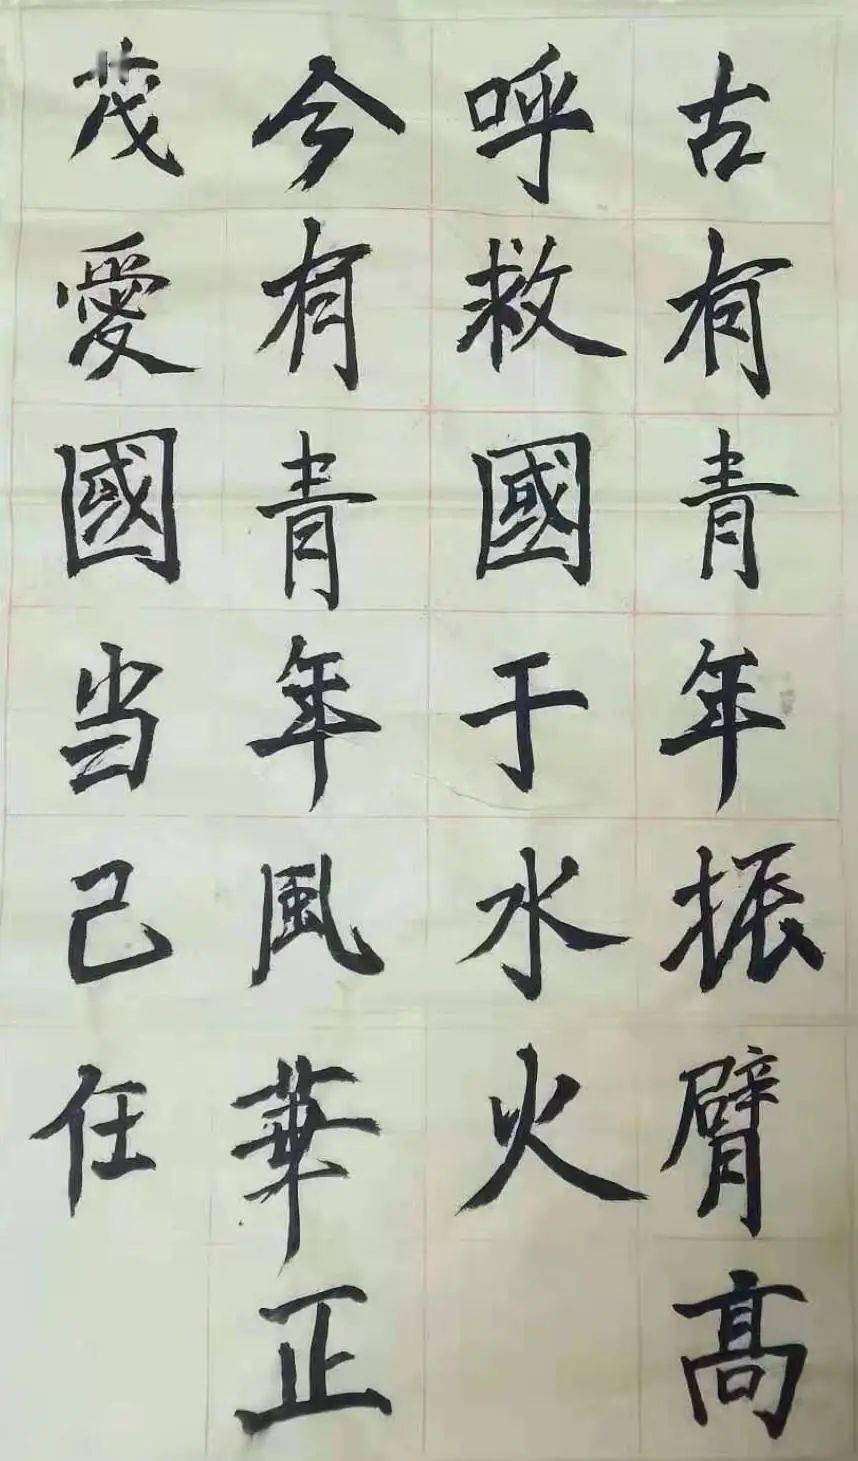 古有青年振臂高
呼救國于水火
今有青年風華正
茂愛國当己任